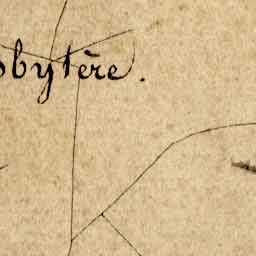 sbytère.